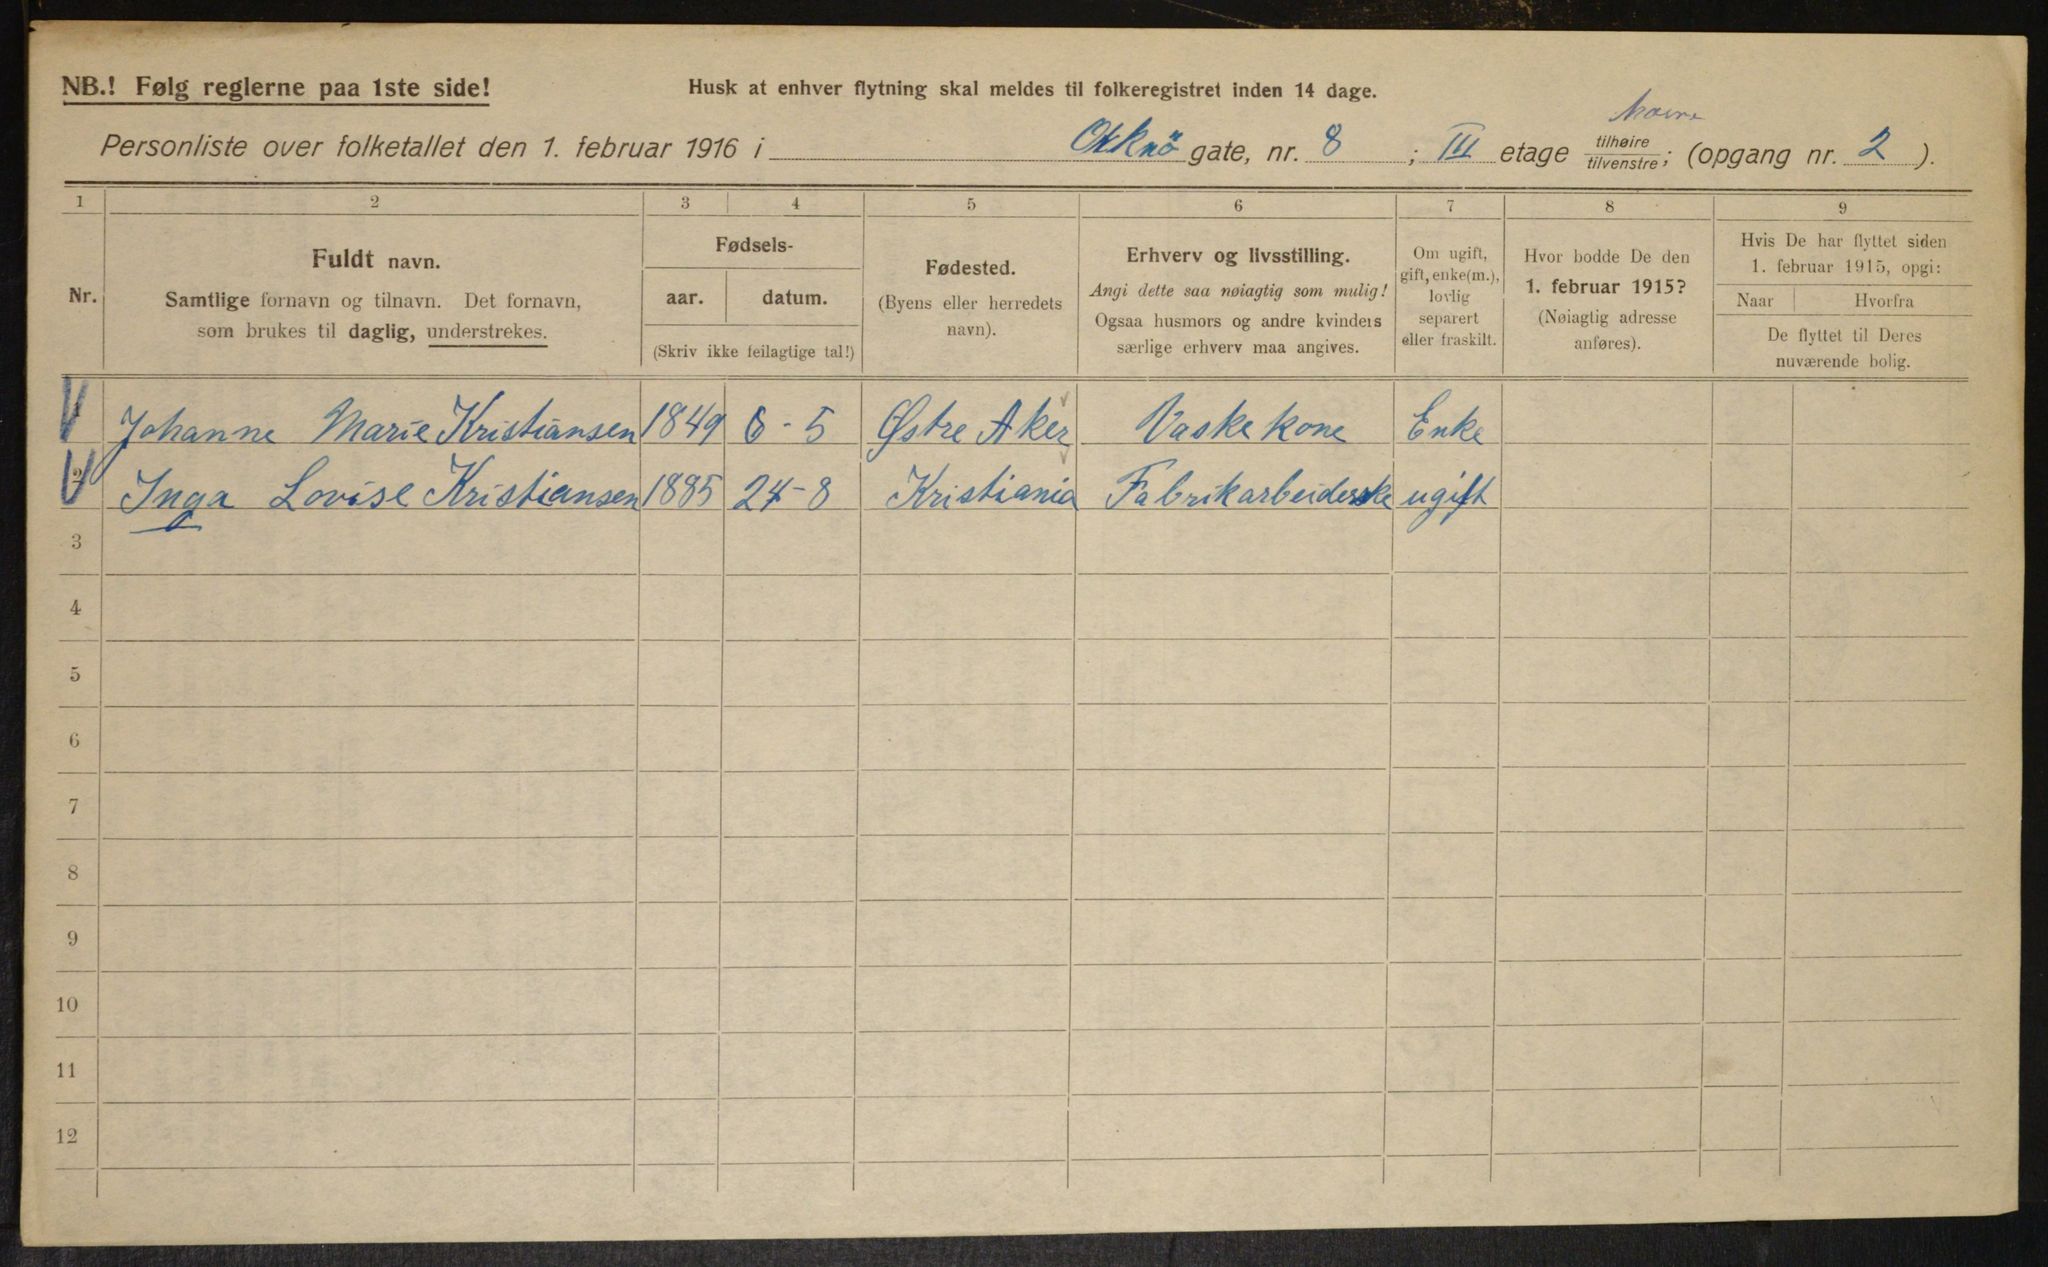 NB.! Følg reglerne paa 1ste side!
Husk at enhver flytning skal meldes til folkeregistret inden 14 dage.
Personliste over folketallet den 1. februar 1916 i Orknö gate, nr. 8 ; III etage tilhøire/tilvenstre; (opgang nr. 2 ).
1 2 3 4 5 6 7 8 9
Nr.
Fuldt navn.
Samtlige fornavn og tilnavn. Det fornavn,
som brukes til daglig, understrekes.
Fødsels-
aar. datum.
(Skriv ikke feilagtige tal!)
Fødested.
(Byens eller herredets
navn).
Erhverv og livsstilling.
Angi dette saa nøiagtig som mulig!
Ogsaa husmors og andre kvinders
særlige erhverv maa angives.
Om ugift,
gift, enke(m.),
lovlig
separert
eller fraskilt.
Hvor bodde De den
1. februar 1915?
(Nøiagtig adresse
anføres).
Hvis De har flyttet siden
1. februar 1915, opgi:
Naar Hvorfra
De flyttet til Deres
nuværende bolig.
Johanne Marie Kristiansen 1849 6-5 Østre Aker Vaskekone Enke
2 Inga Lovise Kristiansen 1885 24-8 Kristiania Fabrikarbeiderske ugift
3
4
5
6
7
8
9
10
11
12